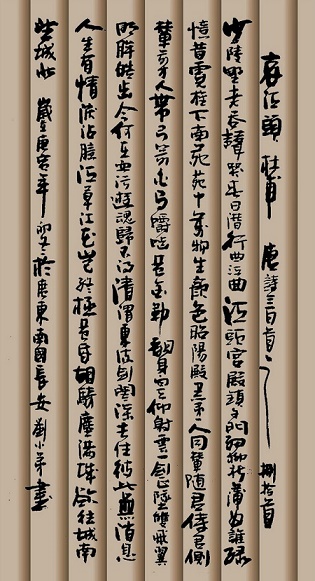 哀江頭 杜甫 唐詩三百首之 捌拾首
少陵野老吞聲哭春日潛行曲江曲江頭宮殿鎖千門細柳新蒲為誰綠
憶昔霓旌下南苑苑中萬物生顏色昭陽殿裏第一人同輦隨君侍君側
輦前才人帶弓箭白馬嚼齧黃金勒翻身向天仰射雲一劍正墜雙飛翼
明眸皓齒今何在血污遊魂歸不得清渭東流劍閣深去住彼此無消息
人生有情淚沾臆江草江花豈終極黃昏胡騎塵滿城欲往城南
望城北 歲在庚寅年 於廣東南國長安 書